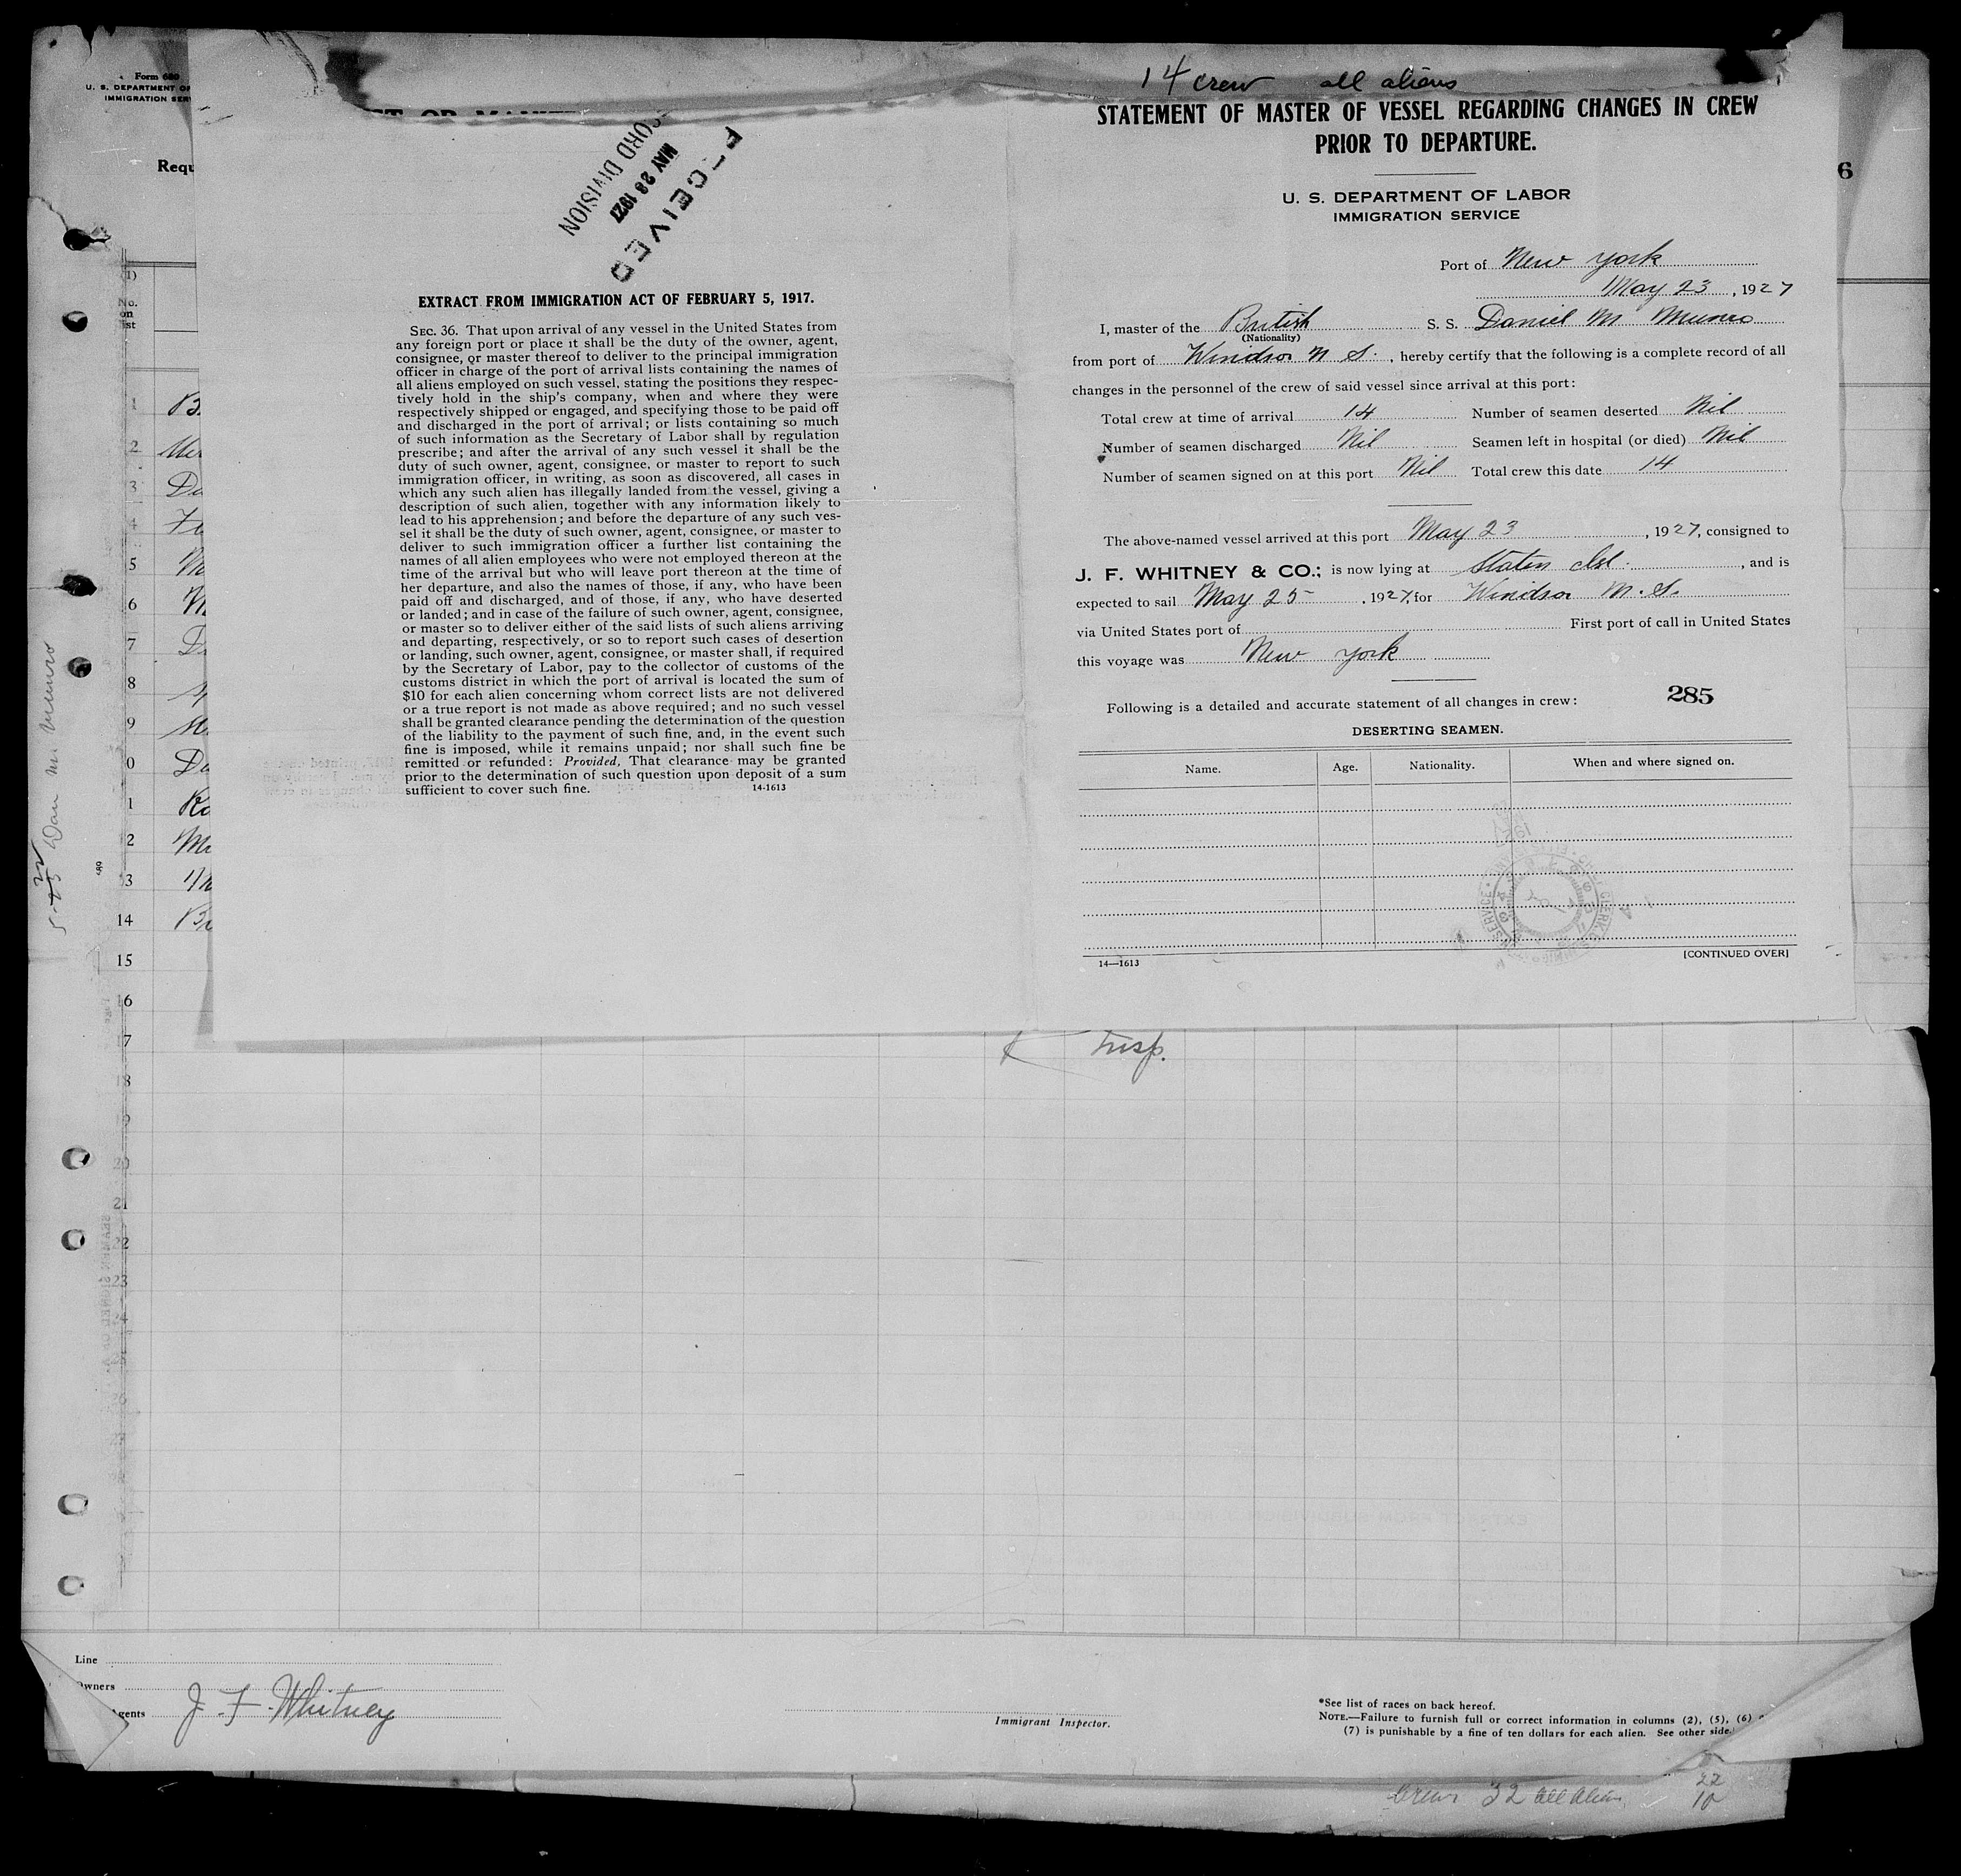 14 crew all aliens
STATEMENT OF MASTER OF VESSEL REGARDING CHANGES IN CREW
PRIOR TO DEPARTURE.
U. S. DEPARTMENT OF LABOR
IMMIGRATION SERVICE
Port of New York
May 23, 1927
I, master of the British S. S. Daniel M Munro
(Nationality)
from port of Windsor N. S., hereby certify that the following is a complete record of all
changes in the personnel of the crew of said vessel since arrival at this port:
Total crew at time of arrival 14 Number of seamen deserted Nil
Number of seamen discharged Nil Seamen left in hospital (or died) Nil
Number of seamen signed on at this port Nil Total crew this date 14
The above-named vessel arrived at this port May 23, 1927, consigned to
J. F. WHITNEY & CO.; is now lying at Staten Isl., and is
expected to sail May 25, 1927, for Windsor N. S.
via United States port of First port of call in United States
this voyage was New York
285
Following is a detailed and accurate statement of all changes in crew:
DESERTING SEAMEN.
Name. Age. Nationality. When and where signed on.
14—1613 [CONTINUED OVER]
RECEIVED
MAY 28 1927
ORD DIVISION
EXTRACT FROM IMMIGRATION ACT OF FEBRUARY 5, 1917.
SEC. 36. That upon arrival of any vessel in the United States from
any foreign port or place it shall be the duty of the owner, agent,
consignee, or master thereof to deliver to the principal immigration
officer in charge of the port of arrival lists containing the names of
all aliens employed on such vessel, stating the positions they respec-
tively hold in the ship's company, when and where they were
respectively shipped or engaged, and specifying those to be paid off
and discharged in the port of arrival; or lists containing so much
of such information as the Secretary of Labor shall by regulation
prescribe; and after the arrival of any such vessel it shall be the
duty of such owner, agent, consignee, or master to report to such
immigration officer, in writing, as soon as discovered, all cases in
which any such alien has illegally landed from the vessel, giving a
description of such alien, together with any information likely to
lead to his apprehension; and before the departure of any such ves-
sel it shall be the duty of such owner, agent, consignee, or master to
deliver to such immigration officer a further list containing the
names of all alien employees who were not employed thereon at the
time of the arrival but who will leave port thereon at the time of
her departure, and also the names of those, if any, who have been
paid off and discharged, and of those, if any, who have deserted
or landed; and in case of the failure of such owner, agent, consignee,
or master so to deliver either of the said lists of such aliens arriving
and departing, respectively, or so to report such cases of desertion
or landing, such owner, agent, consignee, or master shall, if required
by the Secretary of Labor, pay to the collector of customs of the
customs district in which the port of arrival is located the sum of
$10 for each alien concerning whom correct lists are not delivered
or a true report is not made as above required; and no such vessel
shall be granted clearance pending the determination of the question
of the liability to the payment of such fine, and, in the event such
fine is imposed, while it remains unpaid; nor shall such fine be
remitted or refunded: Provided, That clearance may be granted
prior to the determination of such question upon deposit of a sum
sufficient to cover such fine. 14-1613
Form 680
U. S. DEPARTMENT OF
IMMIGRATION SERV
Requ
6
No.
on
list
1
2
3
4
5
6
7
8
9
0
1
2
3
14
15
16
7
18
9
20
21
22
23
Dan M. Munro
Insp.
Line
Owners
Agents J. F. Whitney
Immigrant Inspector.
*See list of races on back hereof.
NOTE.—Failure to furnish full or correct information in columns (2), (5), (6)
(7) is punishable by a fine of ten dollars for each alien. See other side.
Crew 32 all alien
22
10